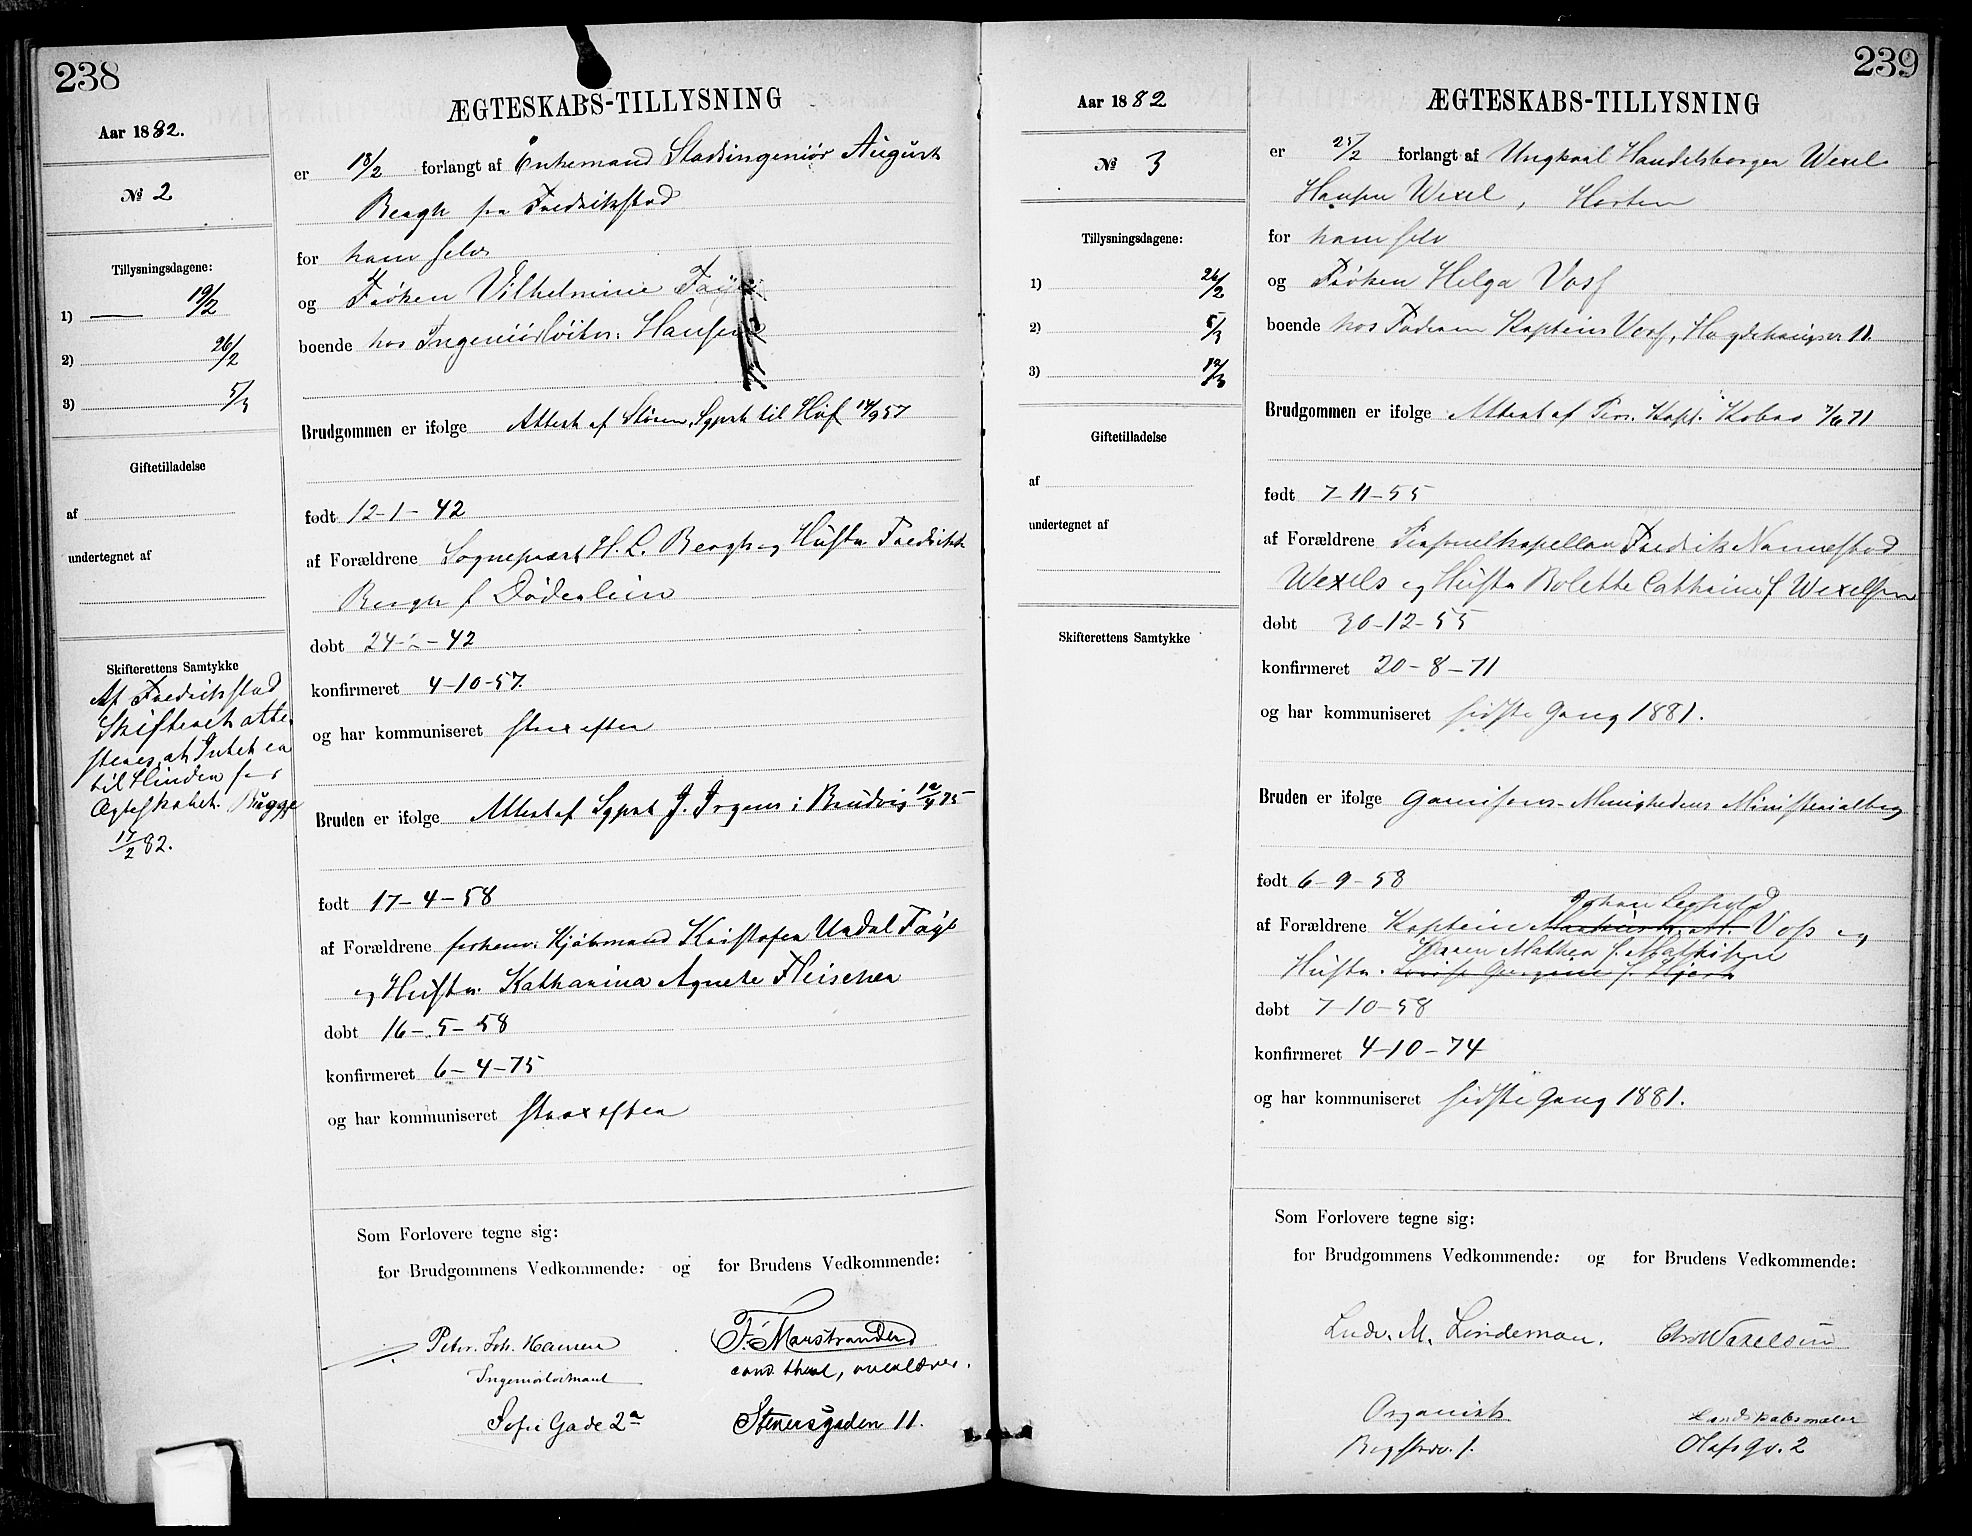 238
Aar 1882.
№ 2
Tillysningsdagene:
1) 19/2
2) 26/2
3) 5/3
Giftetilladelse
af
undertegnet af
Skifterettens Samtykke
Af Fredrikstad
Skifteret atte-
steres at Intet er
til Hinder for
Ægteskabet. Bugge
17/2 82.
ÆGTESKABS-TILLYSNING
er 18/2 forlangt af Enkemand Stadsingeniör August
Bergh fra Fredrikstad
for ham selv
og Frøken Vilhelmine
boende hos Ingeniörlöitn: Hansen
Brudgommen er ifølge Attest af Sgprst til Hof 14/9 57
født 12-1-42
af Forældrene Sogneprest H. L. Bergh og Hustru Fredrikke
Bergh f Døderlein
døbt 24-2-42
konfirmeret 4-10-57.
og har kommuniseret strax efter
Bruden er ifølge Attest af Sgprst J. Irgens i Brudvig 75
født 17-4-58
af Forældrene forhenv: Kjøbmand Kristofer Undal
og Hustru Katharina Agnete Fleischer
døbt 16-5-58
konfirmeret 6-4-75
og har kommuniseret strax efter
Som Forlovere tegne sig:
for Brudgommens Vedkommende: og for Brudens Vedkommende:
Peter Joh. Hansen
Ingeniörlöitnant
Sofie Gade 2a
F. Marstrander
cand. theol, overlærer.
Stenersgaden 11.
239
Aar 1882
№ 3
Tillysningsdagene:
1) 26/2
2) 5/3
3) 12/3
Giftetilladelse
af
undertegnet af
Skifterettens Samtykke
ÆGTESKABS-TILLYSNING
er 25/2 forlangt af Ungkarl Handelsborger Wexel
Hansen Wexel, Horten
for ham selv
og Frøken Helga Voss
boende hos Faderen Kaptein Voss, Hægdehaugsv 11.
Brudgommen er ifølge Attest af Pers. Kapl. 7/6 71
født 7-11-55
af Forældrene Personelkapellan Fredrik Nannestad
Wexels og Hustru Bolette Cathrine f Wexelsen
døbt 30-12-55
konfirmeret 20-8-71
og har kommuniseret sidste Gang 1881.
Bruden er ifølge Garnisons-Menighedens Ministerialbog
født 6-9-58
Johan Leopold
af Forældrene Kaptein Voss og
Karen Mathea f. Mathisen
Hustru
døbt 7-10-58
konfirmeret 4-10-74
og har kommuniseret sidste Gang 1881.
Som Forlovere tegne sig:
for Brudgommens Vedkommende: og for Brudens Vedkommende:
Ludv. M. Lindeman.
Organist
Chr Wexelsen
Landskabsmaler
Olafs Gd. 2